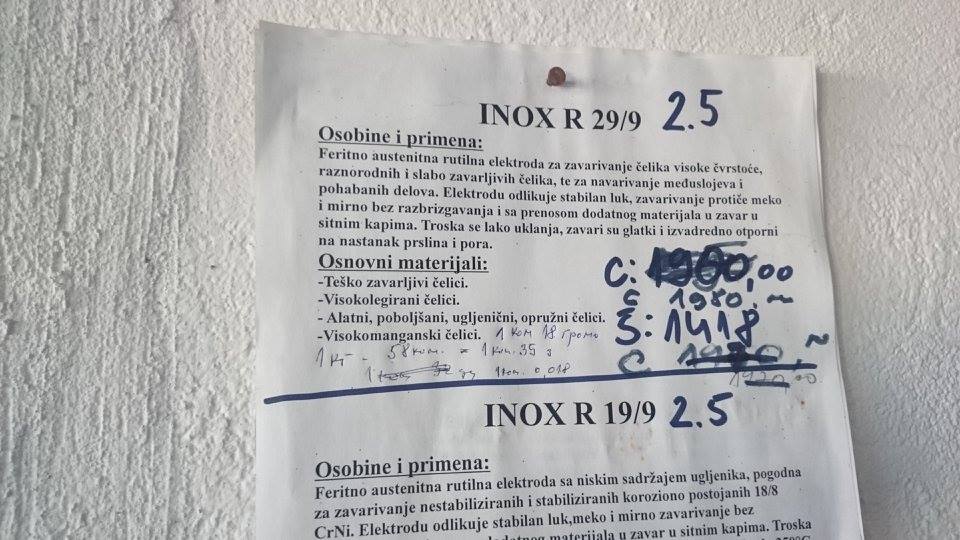 INOX R 29/9 2.5
Osobine i primena:
Feritno austenitna rutilna elektroda za zavarivanje čelika visoke čvrstoće,
raznorodnih i slabo zavarljivih čelika, te za navarivanje međuslojeva i
pohabanih delova. Elektrodu odlikuje stabilan luk, zavarivanje protiče meko
i mirno bez razbrizgavanja i sa prenosom dodatnog materijala u zavar u
sitnim kapima. Troska se lako uklanja, zavari su glatki i izvadredno otporni
na nastanak prslina i pora.
Osnovni materijali:
-Teško zavarljivi čelici.
-Visokolegirani čelici.
- Alatni, poboljšani, ugljenični, opružni čelici.
-Visokomanganski čelici.
C: ,00
1980.~
Š: 1418
1 ком 18 грама
1 кг - 58 ком. = 1 ком. 35
1 ком. 0,018
INOX R 19/9 2.5
Osobine i primena:
Feritno austenitna rutilna elektroda sa niskim sadržajem ugljenika, pogodna
za zavarivanje nestabiliziranih i stabiliziranih koroziono postojanih 18/8
CrNi. Elektrodu odlikuje stabilan luk,meko i mirno zavarivanje bez
materijala u zavar u sitnim kapima. Troska